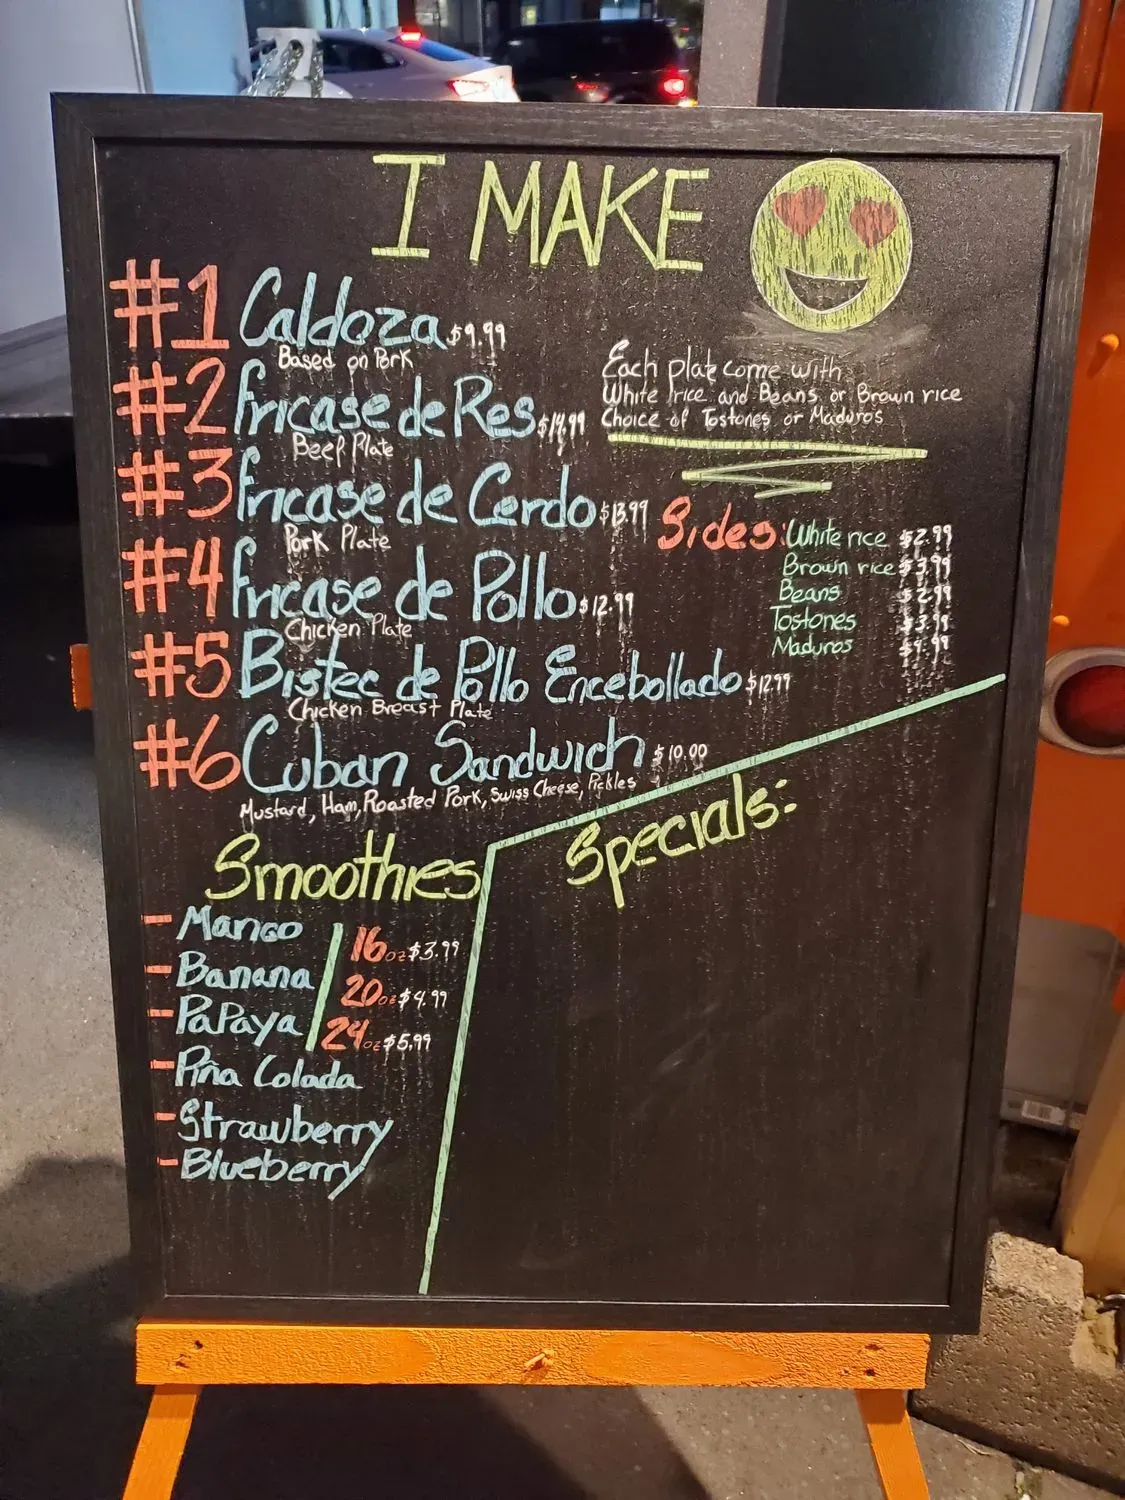 I MAKE
#1 Caldoza $9.99
Based on Pork
#2 Fricase de Res $14.99
Beef Plate
#3 Fricase de Cerdo $13.99
Pork Plate
#4 Fricase de Pollo $12.99
Chicken Plate
#5 Bistec de Pollo Encebollado $12.99
Chicken Breast Plate
#6 Cuban Sandwich $10.00
Mustard, Ham, Roasted Pork, Swiss Cheese, Pickles
Each plate come with
White rice and Beans or Brown rice
Choice of Tostones or Maduros
Sides: White rice $2.99
Brown rice $3.99
Beans $2.99
Tostones $3.99
Maduros
Smoothies
- Mango
- Banana
- PaPaya
- Piña Colada
- Strawberry
- Blueberry
16oz $3.99
20oz $4.99
24oz $5.99
Specials: